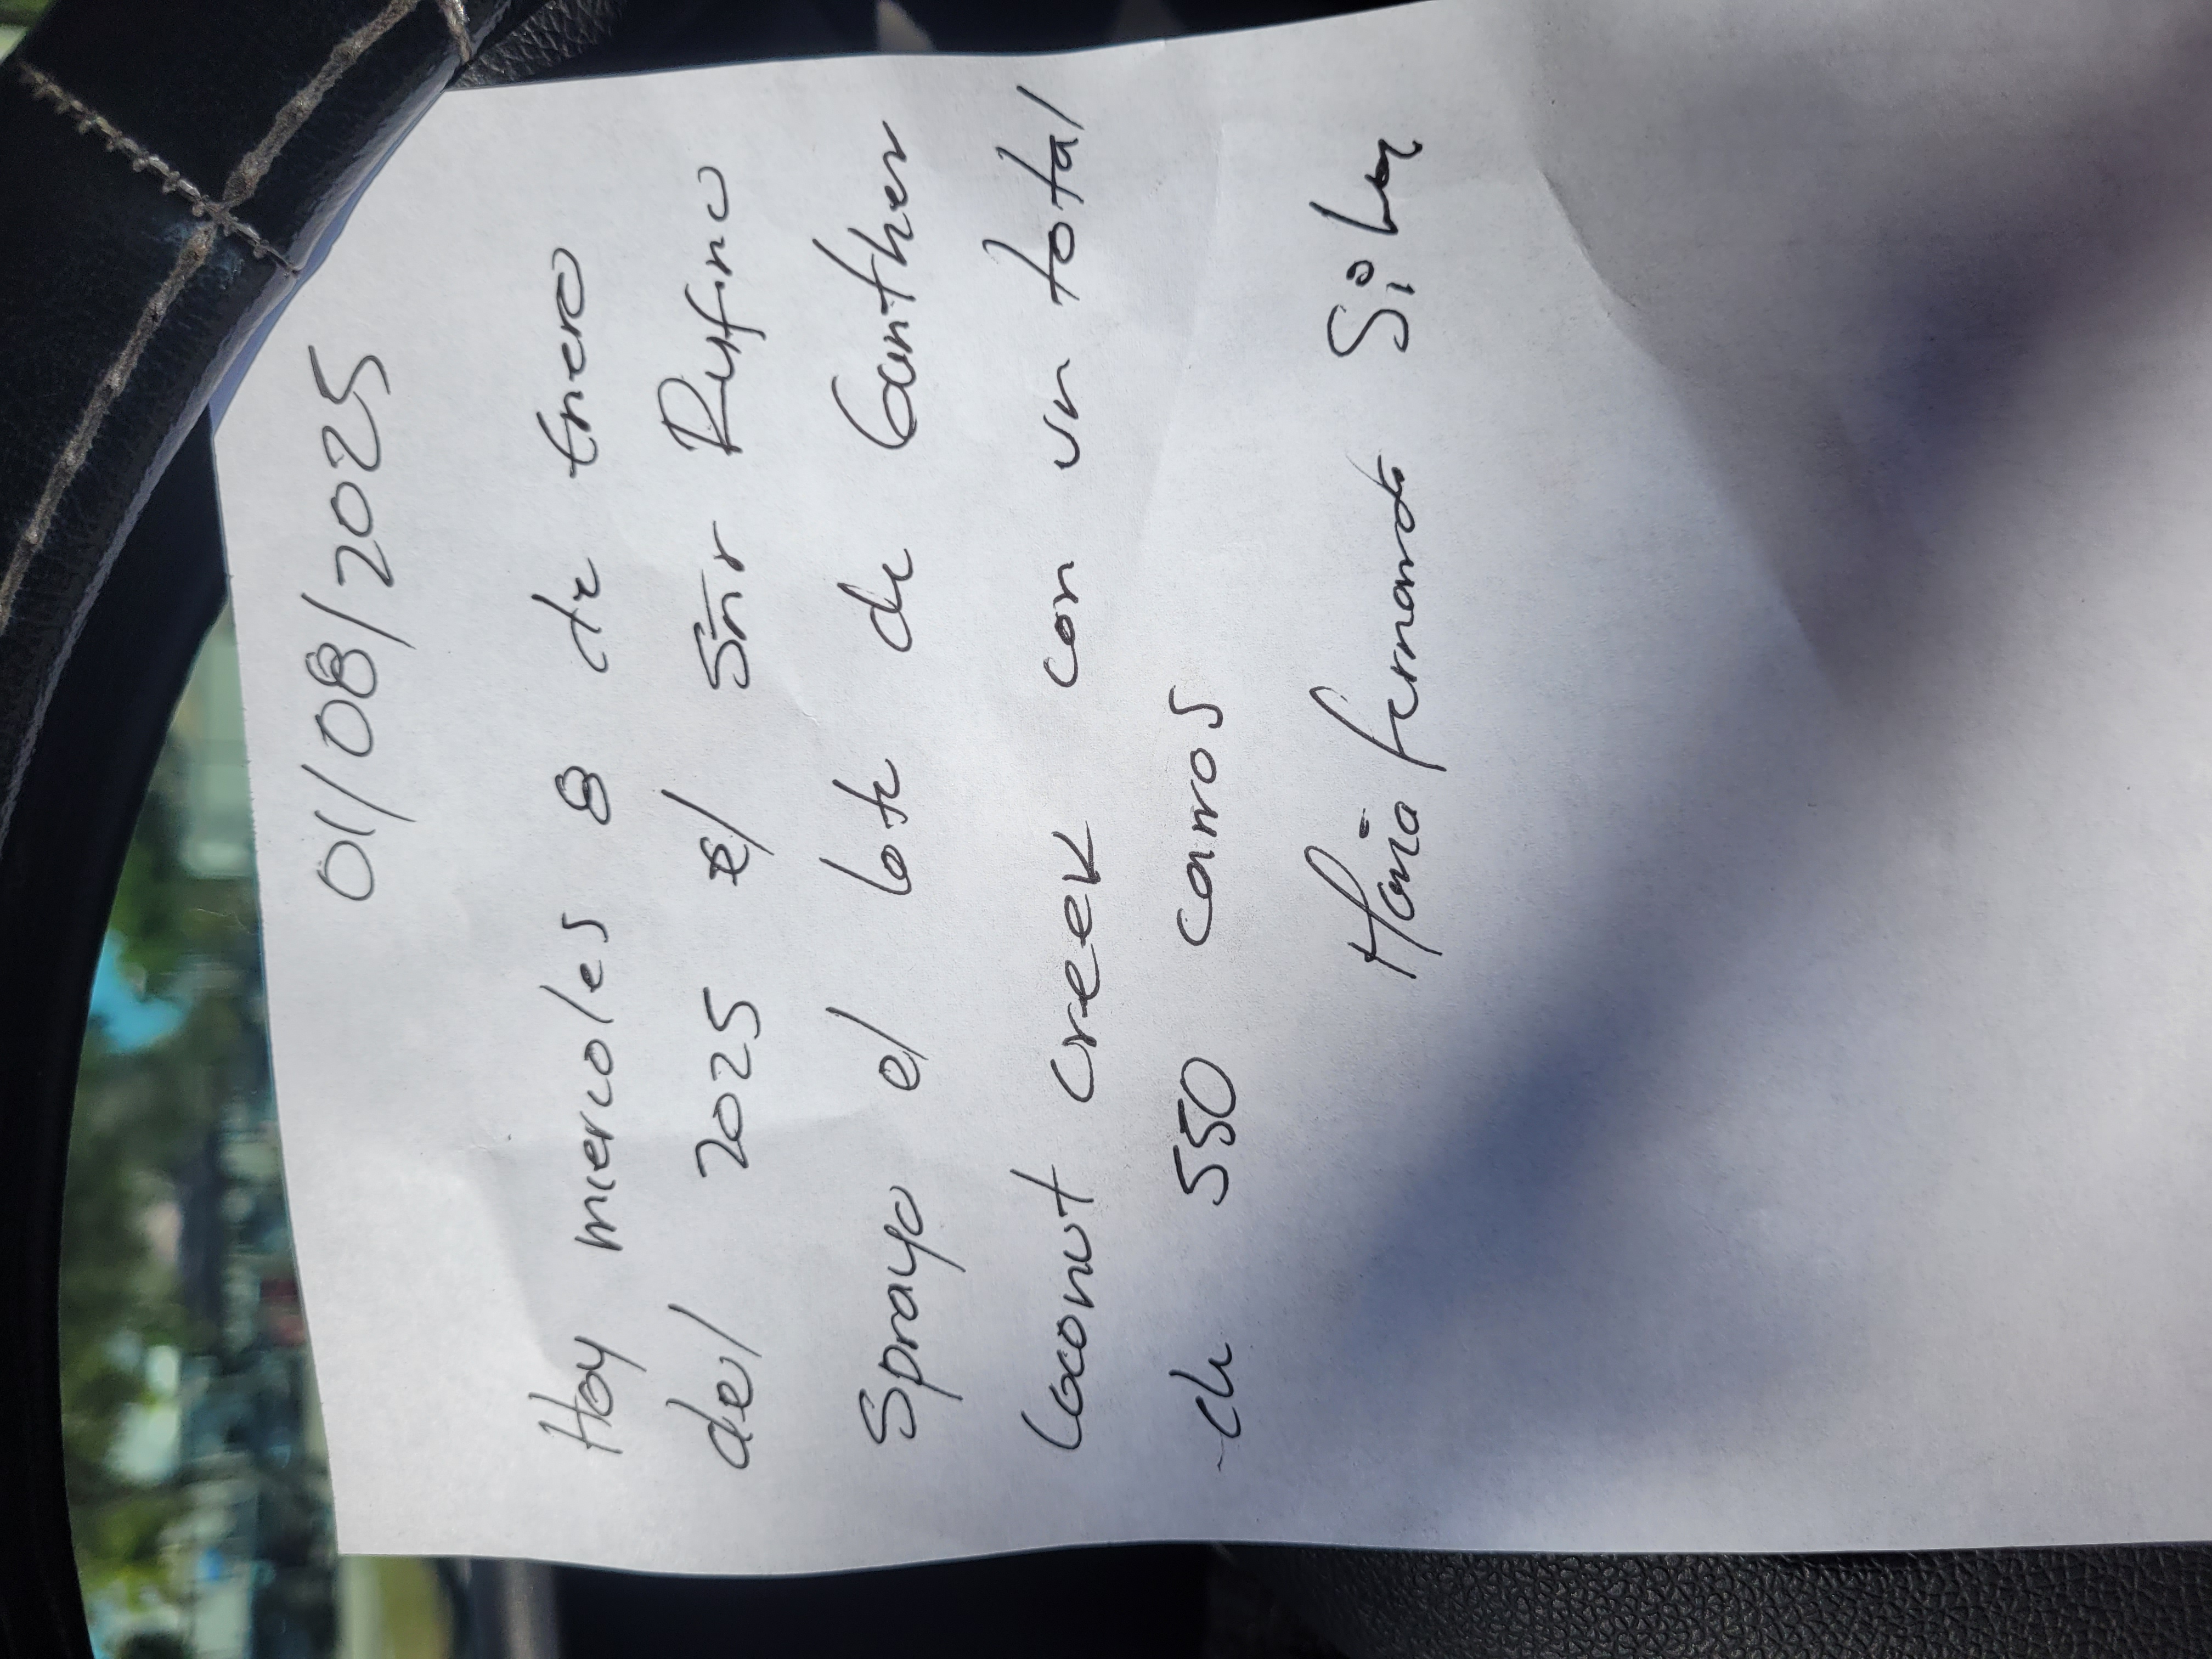 01/08/2025
Hoy miercoles 8 de Enero
del 2025 el Snr Rufino
Sprayo el lote de Gunther
Coconut Creek con un total
de 550 carros
Maria Fernanda Silva